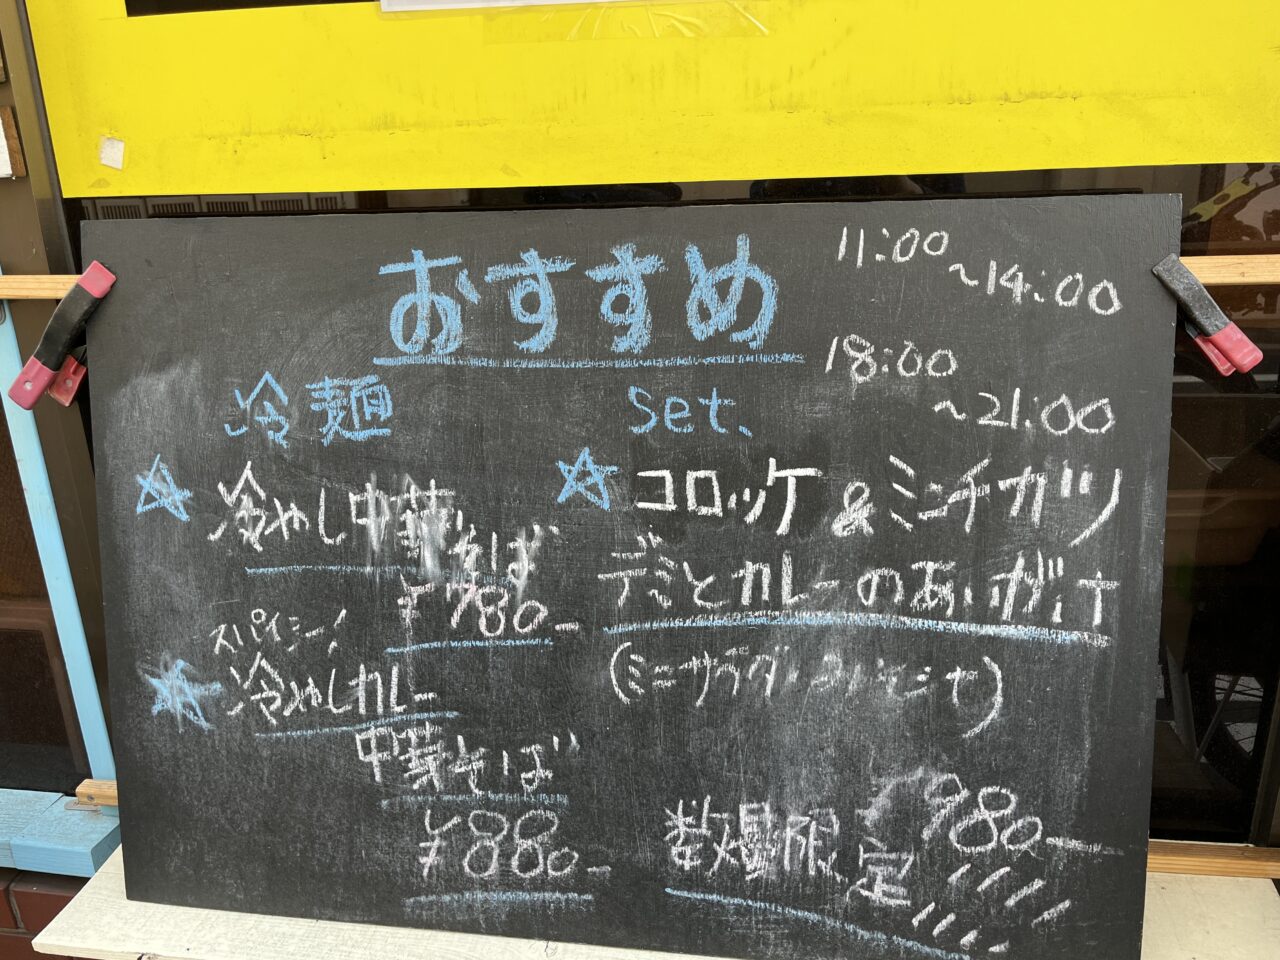 おすすめ
11:00
~14:00
18:00
~21:00
冷麺
☆冷やし中華そば
¥780-
スパイシー!
☆冷やしカレー
中華そば
¥880-
Set.
☆コロッケ&ミンチカツ
デミとカレーのあいがけ
(ミニサラダ
数量限定
980-